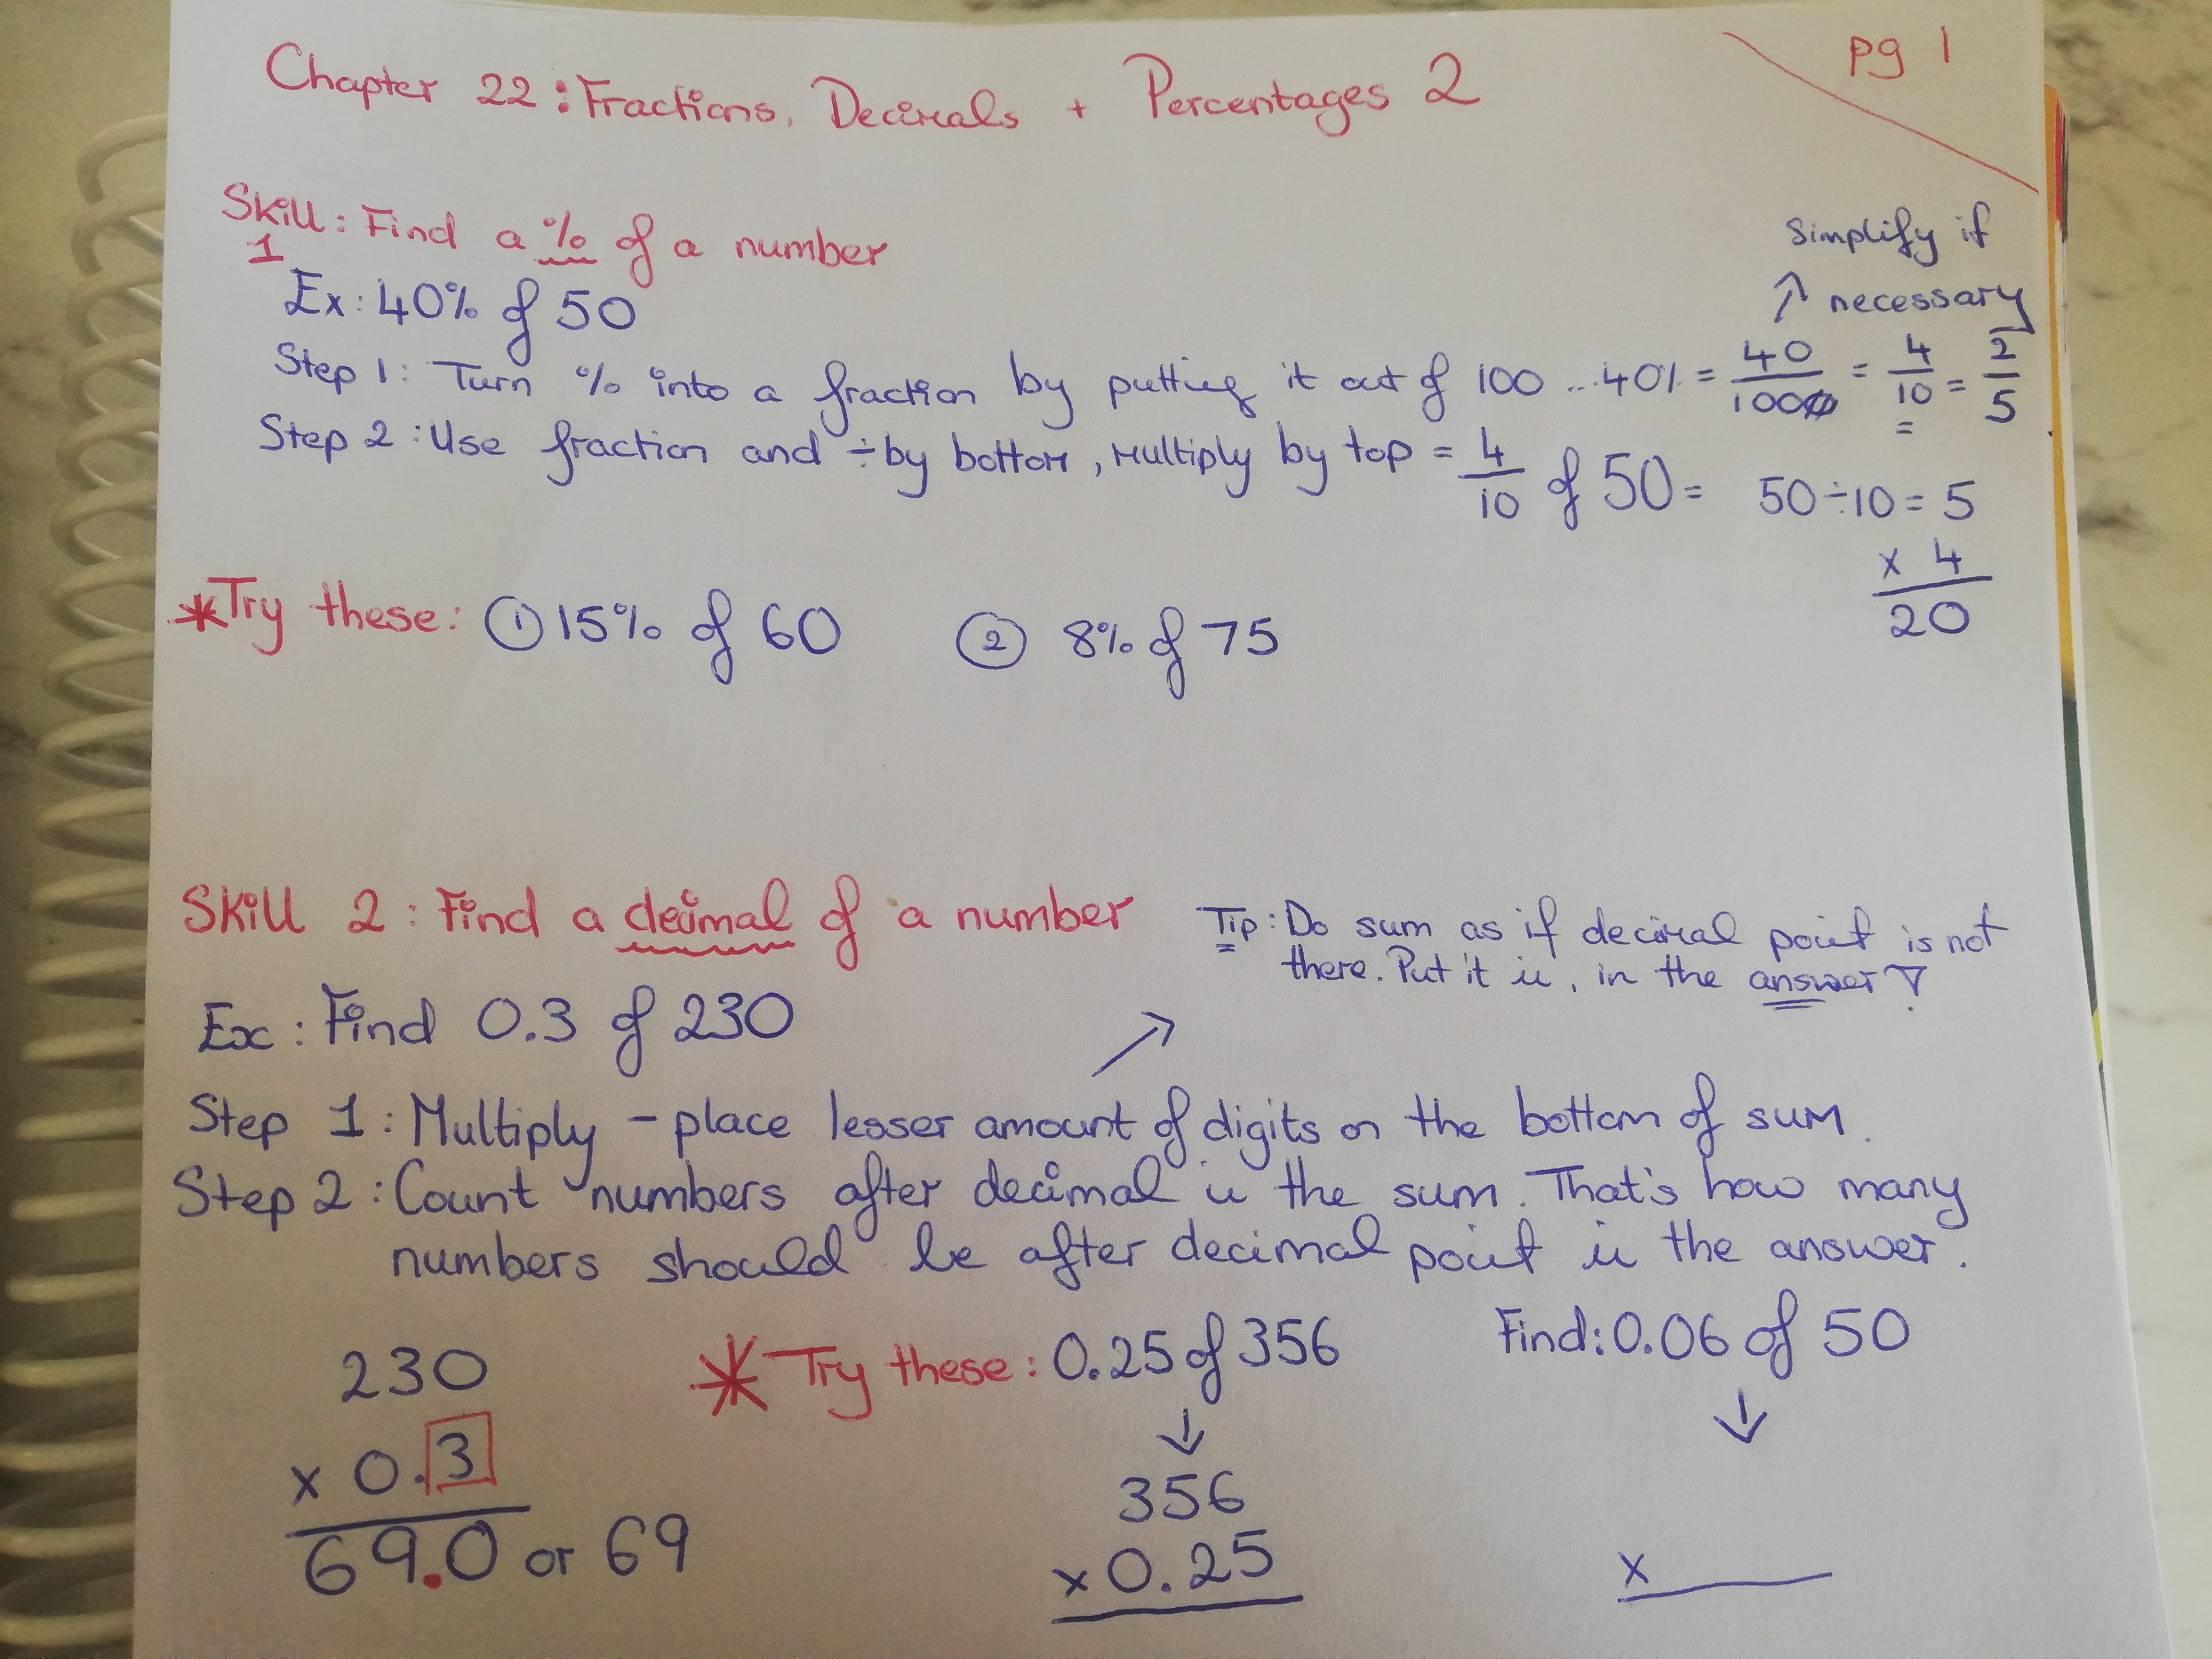 pg 1
Chapter 22: Fractions, Decimals + Percentages 2
Skill 1: Find a % of a number
Simplify if
necessary
Ex: 40% of 50
Step 1: Turn % into a fraction by putting it out of 100 ... 40% = 40/100 = 4/10 = 2/5
Step 2: Use fraction and ÷ by bottom, multiply by top = 4/10 of 50 = 50 ÷ 10 = 5
x 4
20
*Try these: ① 15% of 60 ② 8% of 75
Skill 2: Find a decimal of a number
Tip: Do sum as if decimal point is not
there. Put it in, in the answer!
Ex: Find 0.3 of 230
Step 1: Multiply - place lesser amount of digits on the bottom of sum.
Step 2: Count numbers after decimal in the sum. That's how many
numbers should be after decimal point in the answer.
230
x 0.3
69.0 or 69
* Try these: 0.25 of 356
356
x 0.25
Find: 0.06 of 50
x